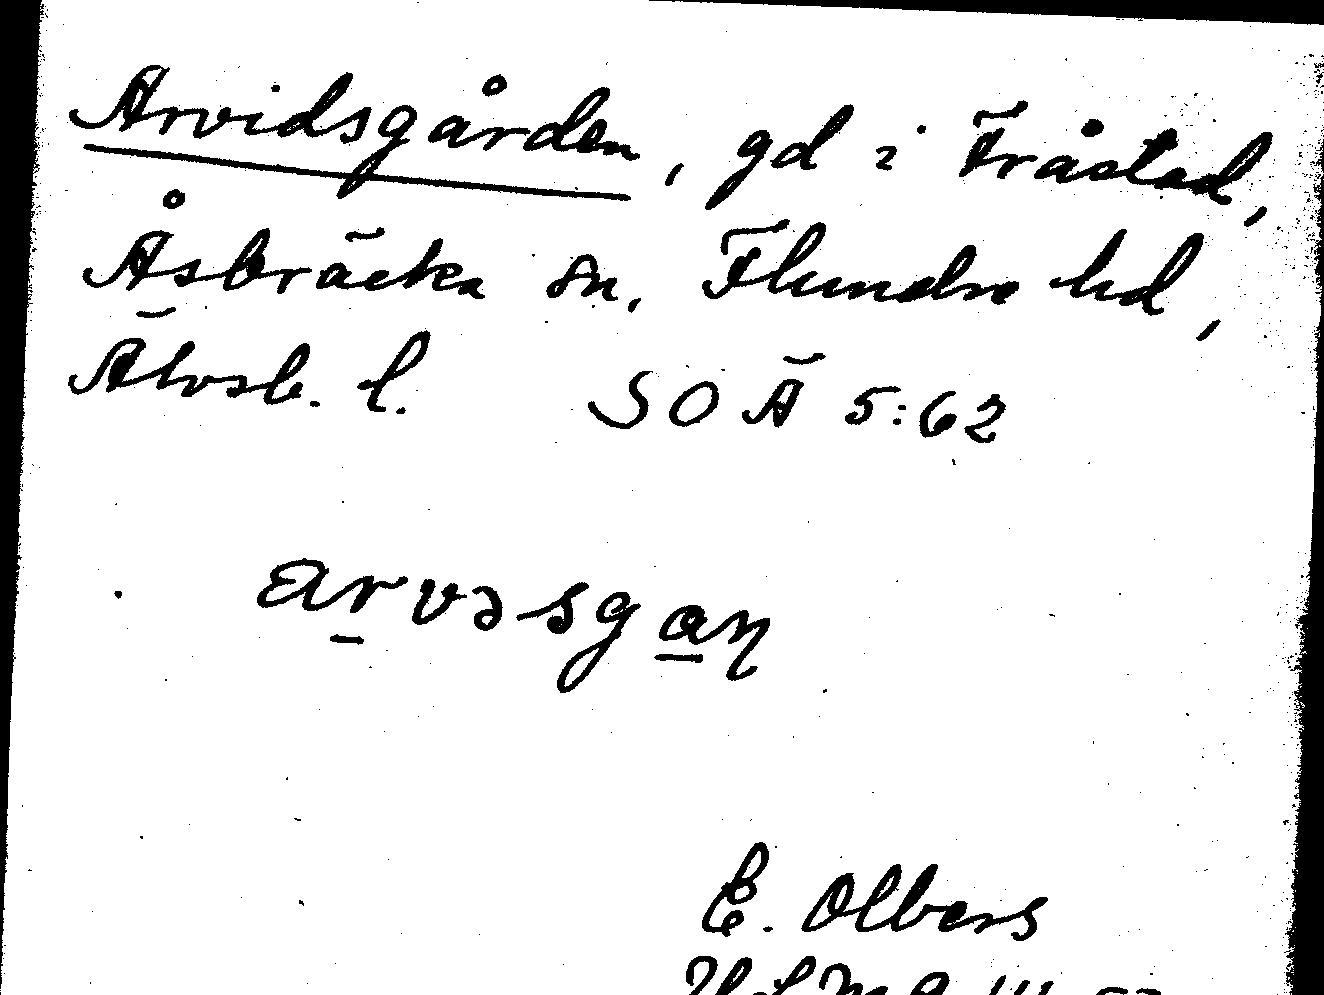 Arvidsgården, gd i Fråstad,
Åsbräcka sn, Flundre hd,
Älvsb. l. SOÄ 5:62
arvəsgaɳ
E. Olbers